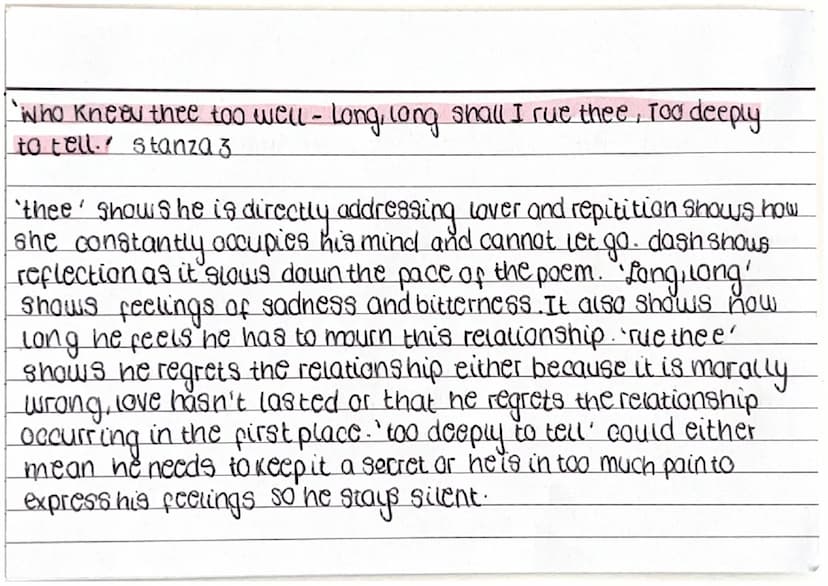 'Who Knew thee too well - Long, long shall I rue thee, Too deeply
to tell.' stanza 3
'thee' shows he is directly addressing lover and repitition shows how
she constantly occupies his mind and cannot let go. dash shows
reflection as it slows down the pace of the poem. 'Long, long'
shows feelings of sadness and bitterness. It also shows how
long he feels he has to mourn this relationship. 'rue thee'
shows he regrets the relationship either because it is morally
wrong, love hasn't lasted or that he regrets the relationship
occurring in the first place. 'too deeply to tell' could either
mean he needs to keep it a secret or he is in too much pain to
express his feelings so he stays silent.